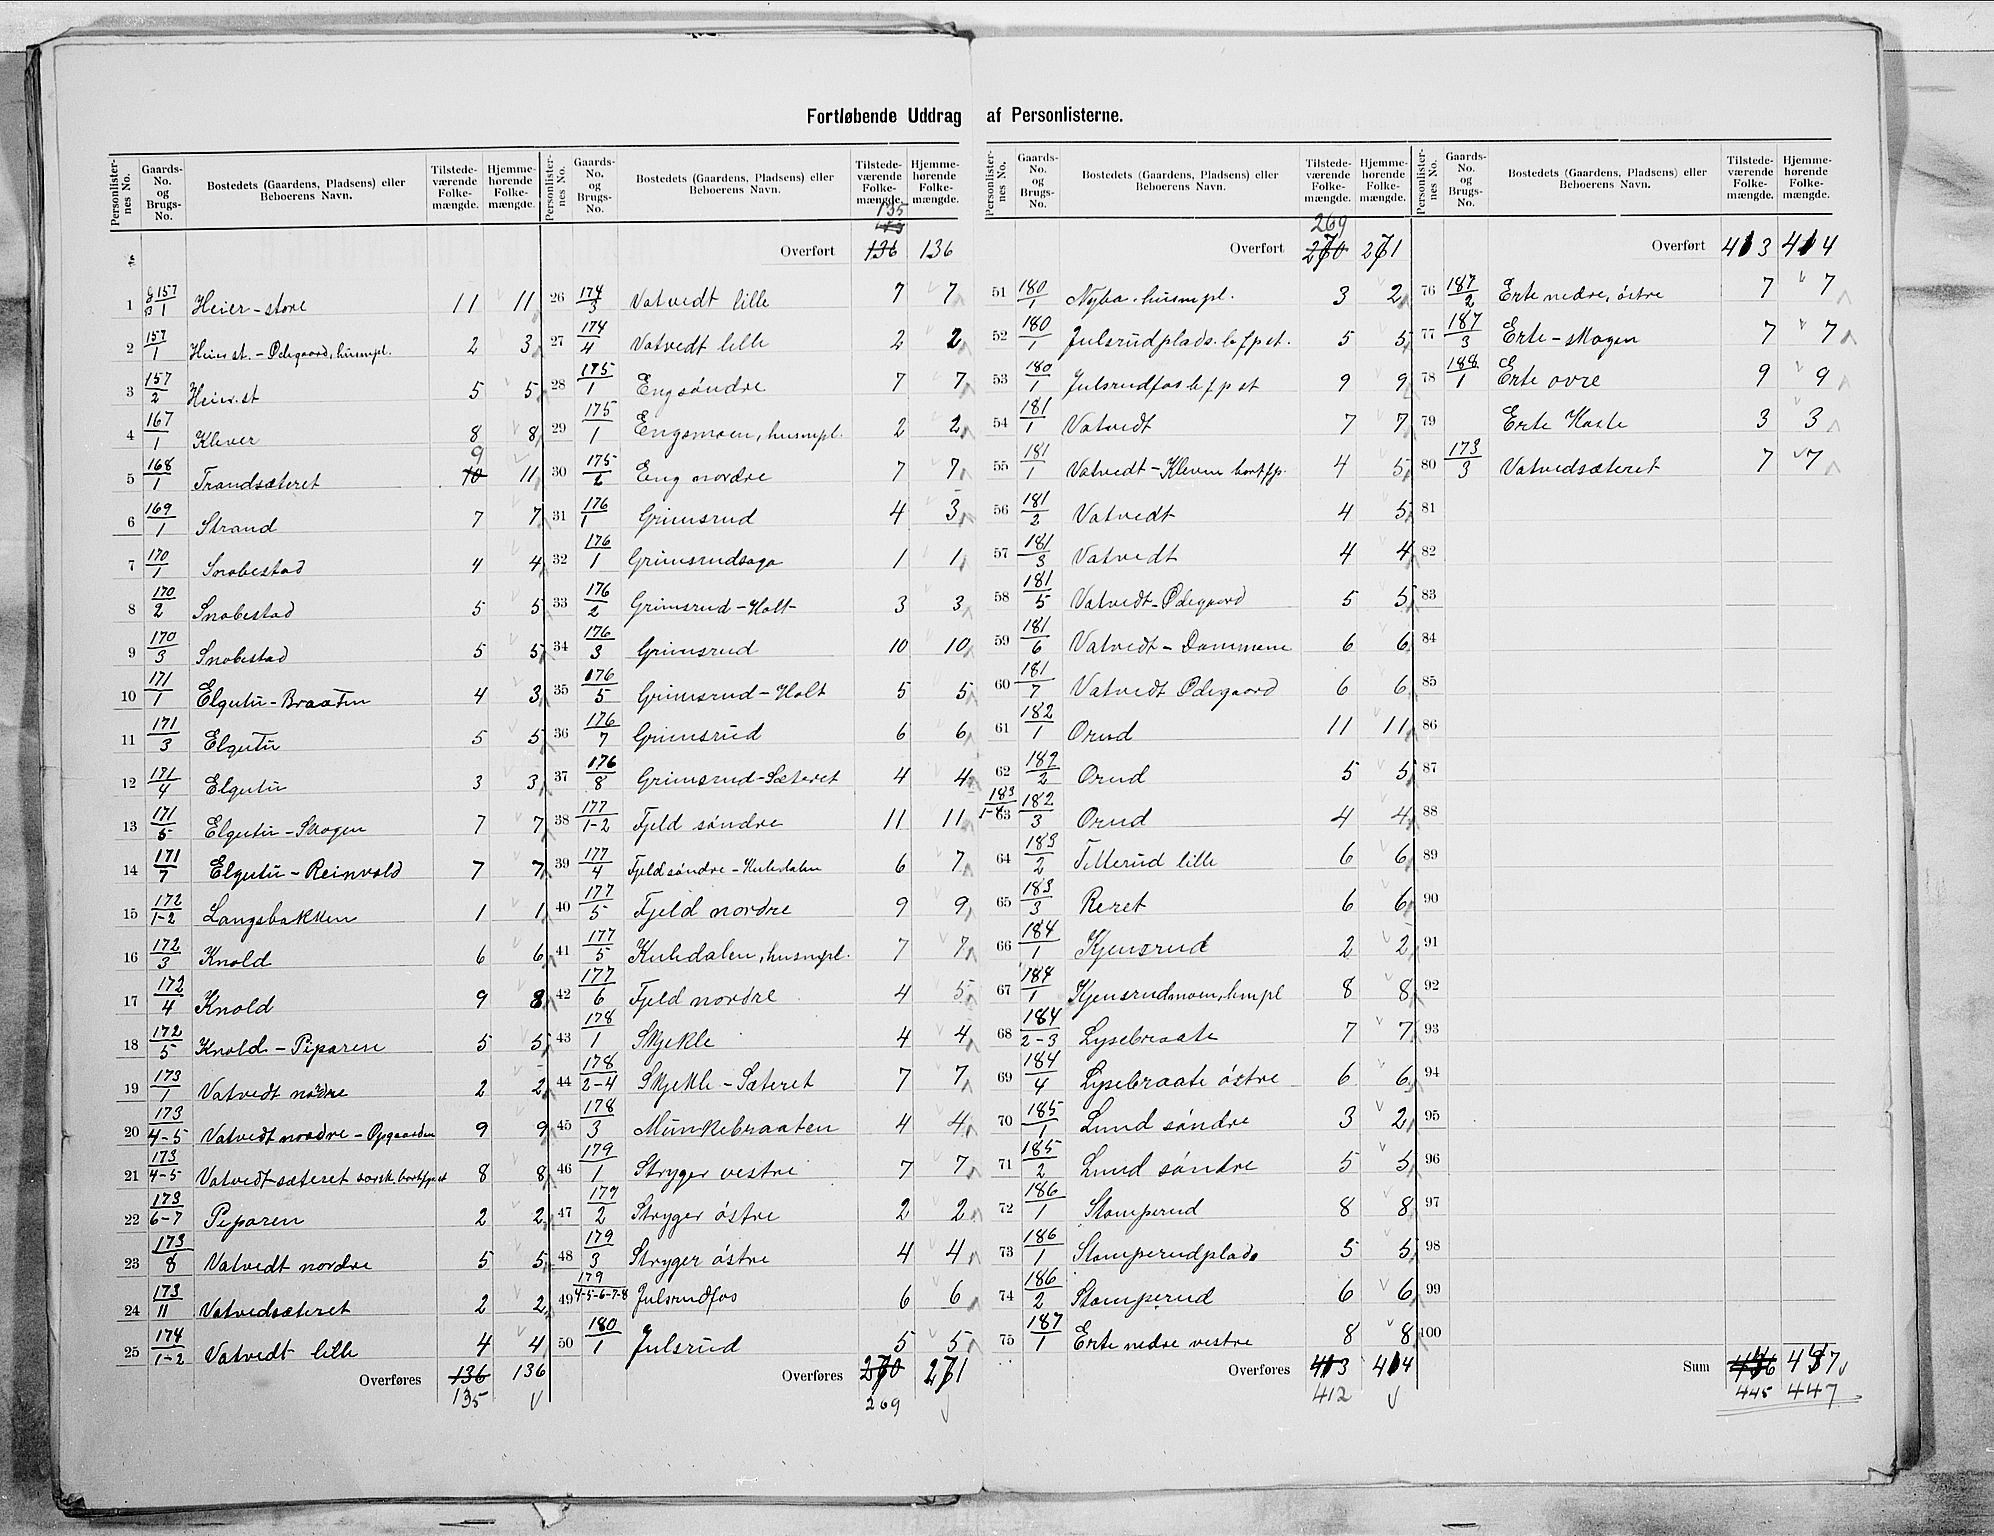 Fortløbende Uddrag af Personlisterne.
Personlister-nes No. Gaards-No. og Brugs-No. Bostedets (Gaardens, Pladsens) eller Beboerens Navn. Tilstede-værende Folke-mængde. Hjemme-hørende Folke-mængde.
1 G 157 / B 1 Heier-store 11 11
2 157/1 Heier st. - Ødegaard, husmpl. 2 3
3 157/2 Heier. st 5 5
4 167/1 Klever 8 8
5 168/1 Trandsæteret 10 9 11
6 169/1 Strand 7 7
7 170/1 Snobestad 4 4
8 170/2 Snobestad 5 5
9 170/3 Snobestad 5 5
10 171/1 Elgetu-Braaten 4 3
11 171/3 Elgetu 5 5
12 171/4 Elgetu 3 3
13 171/5 Elgetu-Skogen 7 7
14 171/7 Elgetu-Reinvold 7 7
15 172/1-2 Langsbakken 1 1
16 172/3 Knold 6 6
17 172/4 Knold 9 8
18 172/5 Knold-Piparen 5 5
19 173/1 Vatvedt nordre 2 2
20 173/4-5 Vatvedt nordre-Opgaarden 9 9
21 173/4-5 Vatvedt-sæteret 8 8
22 173/6-7 Piparen 2 2
23 173/8 Vatvedt nordre 5 5
24 173/11 Vatvedsæteret 2 2
25 174/1-2 Vatvedt lille 4 4
Overføres 136 136
135
Personlister-nes No. Gaards-No. og Brugs-No. Bostedets (Gaardens, Pladsens) eller Beboerens Navn. Tilstede-værende Folke-mængde. Hjemme-hørende Folke-mængde.
135
Overført 136 136
26 174/3 Vatvedt lille 7 7
27 174/4 Vatvedt lille 2 2
28 175/1 Eng søndre 7 7
29 175/1 Engsmoen, husmpl. 2 2
30 175/2 Eng nordre 7 7
31 176/1 Grimsrud 4 3
32 176/1 Grimsrudsaga 1 1
33 176/2 Grimsrud-Holt 3 3
34 176/3 Grimsrud 10 10
35 176/5 Grimsrud-Holt 5 5
36 176/7 Grimsrud 6 6
37 176/8 Grimsrud-Sæteret 4 4
38 177/1-2 Fjeld søndre 11 11
39 177/4 Fjeld søndre-Kuledalen 6 7
40 177/5 Fjeld nordre 9 9
41 177/5 Kuledalen, husmpl. 7 7
42 177/6 Fjeld nordre 4 5
43 178/1 Skjekle 4 4
44 178/2-4 Skjekle-Sæteret 7 7
45 178/3 Munkebraaten 4 4
46 179/1 Stryger vestre 7 7
47 179/2 Stryger østre 2 2
48 179/3 Stryger østre 4 4
49 179/4-5-6-7-8 Julsrudfos 6 6
50 180/1 Julsrud 5 5
Overføres 270 271
269
Personlister-nes No. Gaards-No. og Brugs-No. Bostedets (Gaardens, Pladsens) eller Beboerens Navn. Tilstede-værende Folke-mængde. Hjemme-hørende Folke-mængde.
269
Overført 270 271
51 180/1 Nybo. husmpl. 3 2
52 180/1 Julsrudplads. 5 5
53 180/1 Julsrudfos 9 9
54 181/1 Vatvedt 7 7
55 181/1 Vatvedt-Kleven 4 5
56 181/2 Vatvedt 4 5
57 181/3 Vatvedt 4 4
58 181/5 Vatvedt-Ødegaard 5 5
59 181/6 Vatvedt-Dammene 6 6
60 181/7 Vatvedt Ødegaard 6 6
61 182/1 Orud 11 11
62 182/2 Orud 5 5
183/1-4 63 182/3 Orud 4 4
64 183/2 Titterud lille 6 6
65 183/3 Reret 6 6
66 184/1 Kjensrud 2 2
67 184/1 Kjensrudmoen, hmpl 8 8
68 184/2-3 Lysebraate 7 7
69 184/4 Lysebraate østre 6 6
70 185/1 Lund søndre 3 2
71 185/2 Lund søndre 5 5
72 186/1 Stomperud 8 8
73 186/1 Stomperudplads 5 5
74 186/2 Stomperud 6 6
75 187/1 Erte nedre vestre 8 8
Overføres 413 414
412
Personlister-nes No. Gaards-No. og Brugs-No. Bostedets (Gaardens, Pladsens) eller Beboerens Navn. Tilstede-værende Folke-mængde. Hjemme-hørende Folke-mængde.
Overført 413 414
76 187/2 Erte nedre, østre 7 7
77 187/3 Erte-Mogen 7 7
78 188/1 Erte øvre 9 9
79 Erte Hasle 3 3
80 173/3 Vatvedsæteret 7 7
81
82
83
84
85
86
87
88
89
90
91
92
93
94
95
96
97
98
99
100
Sum 446 447
445 447